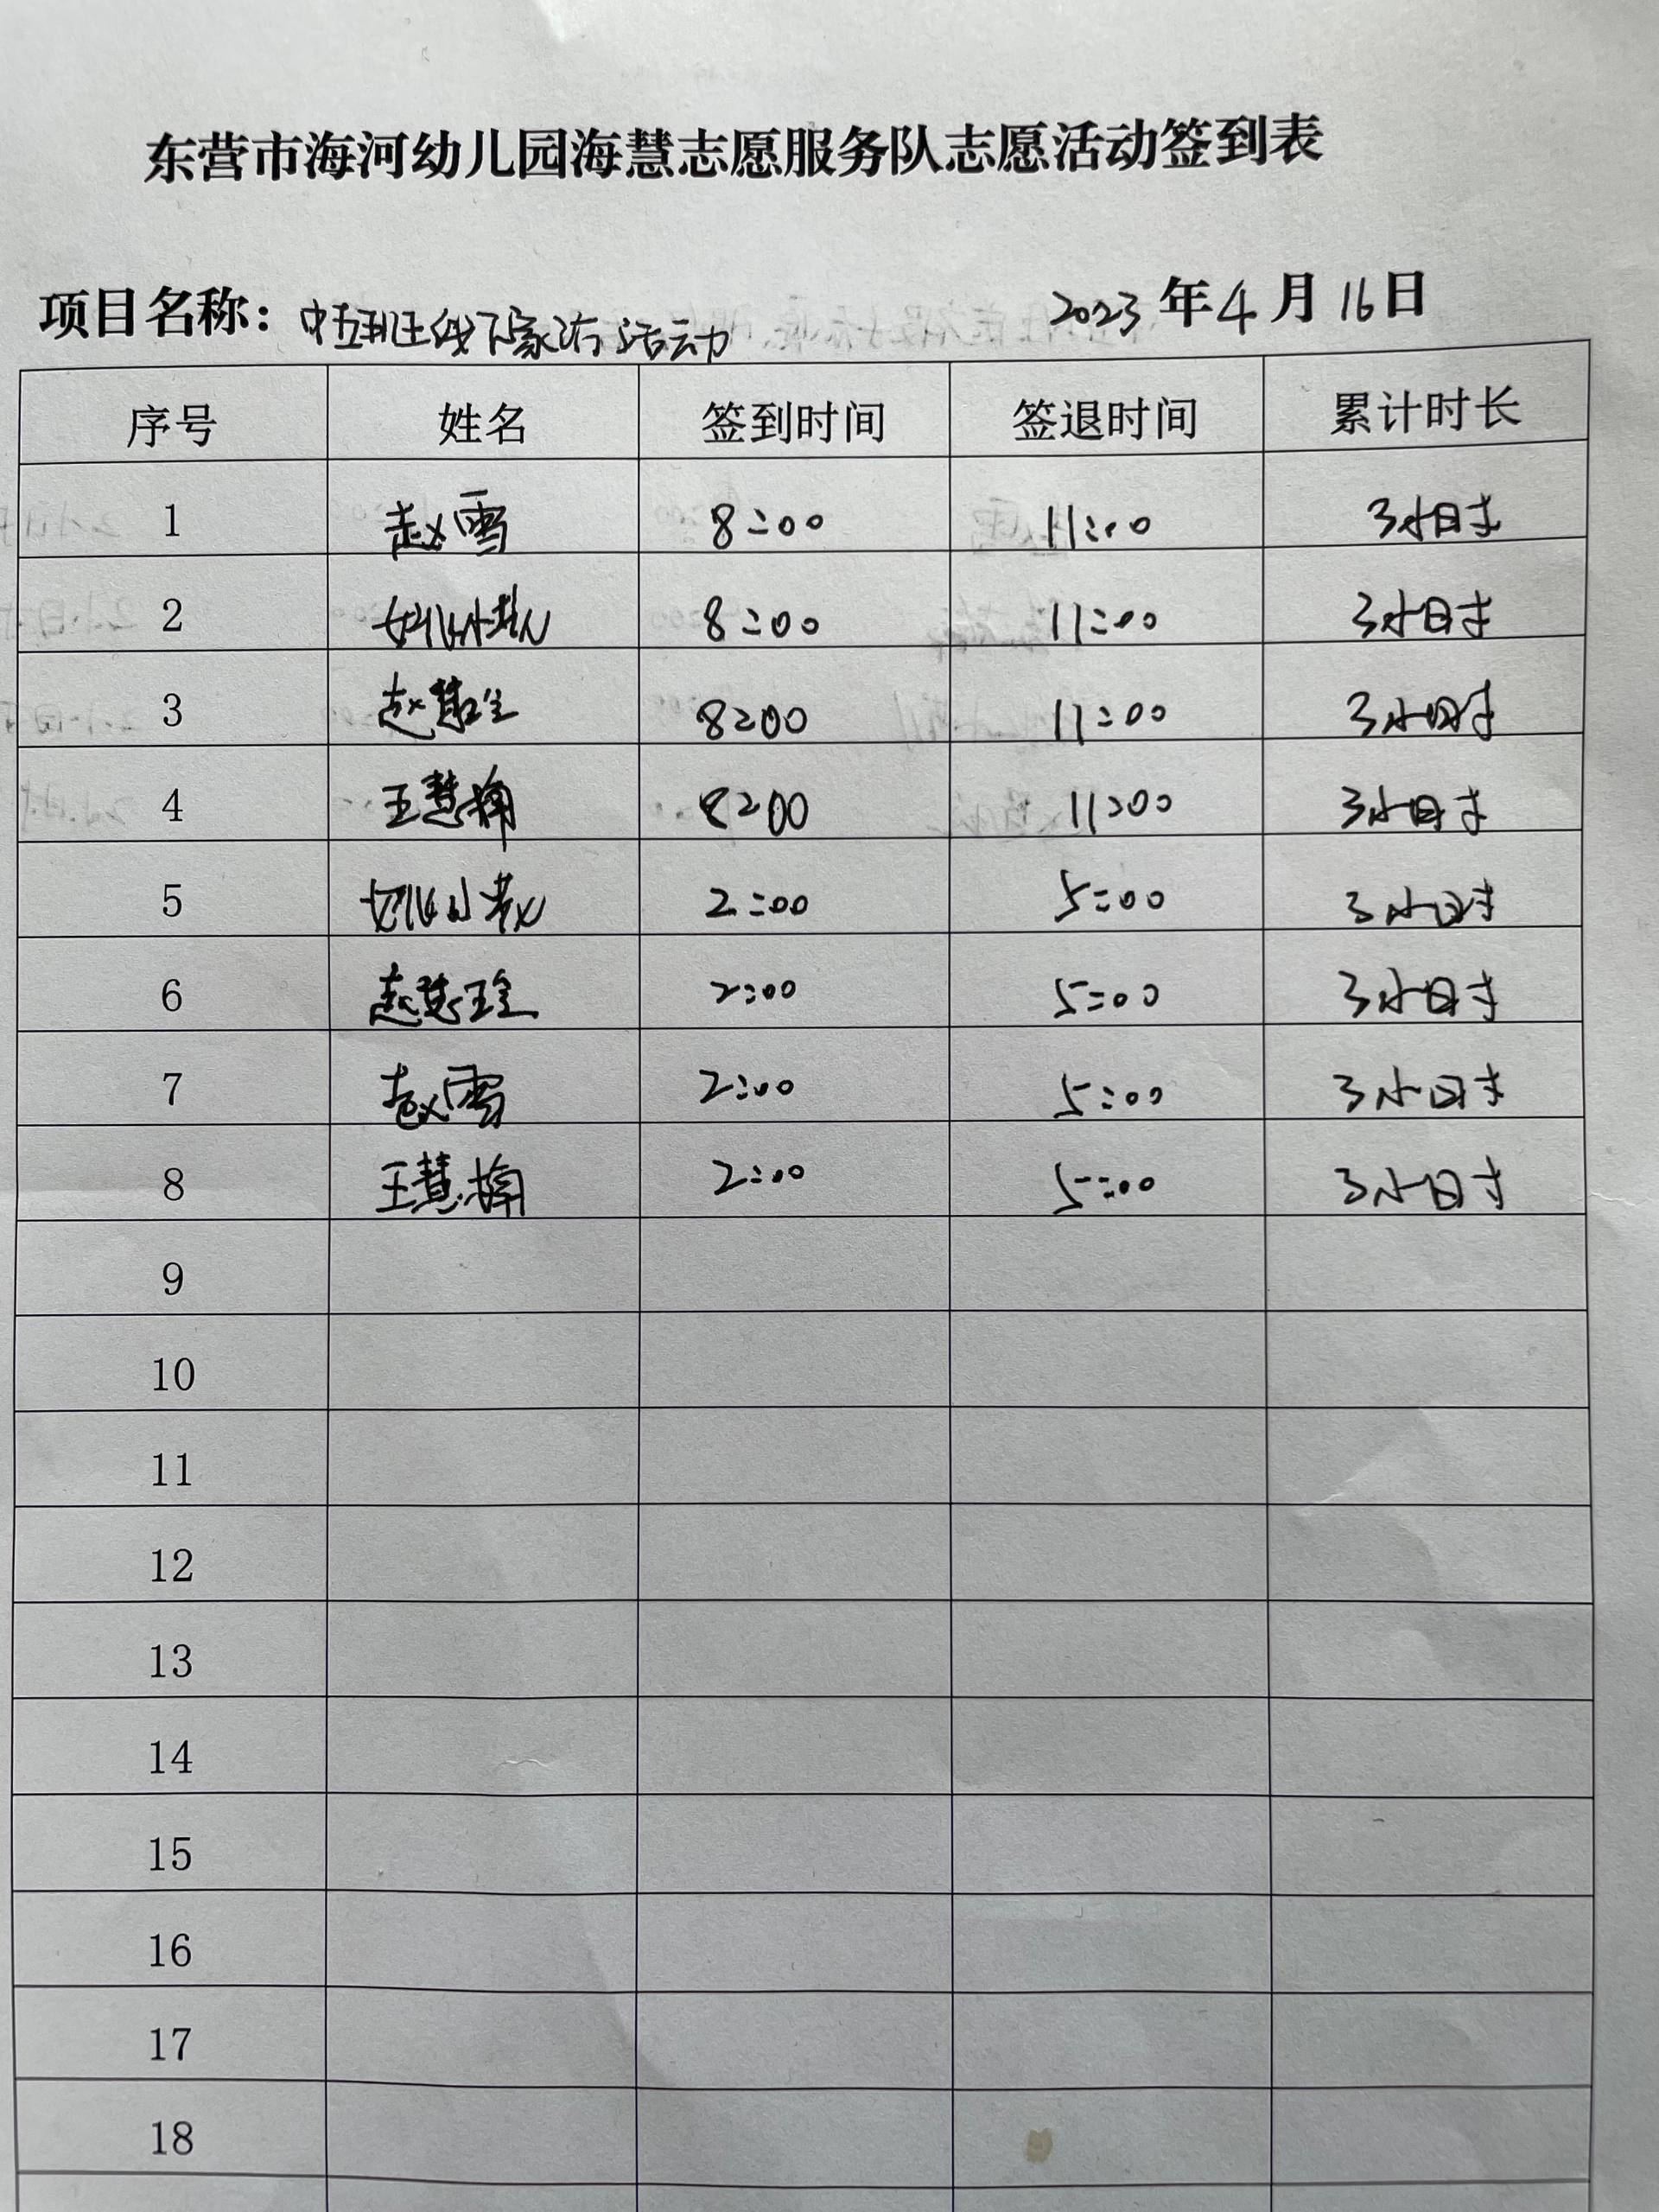 东营市海河幼儿园海慧志愿服务队志愿活动签到表
项目名称：中五班线下家访活动 2023年4月16日
序号 姓名 签到时间 签退时间 累计时长
1 赵雪 8:00 11:00 3小时
2 8:00 11:00 3小时
3 赵慧 8:00 11:00 3小时
4 王慧楠 8:00 11:00 3小时
5 2:00 5:00 3小时
6 赵慧 2:00 5:00 3小时
7 赵雪 2:00 5:00 3小时
8 王慧楠 2:00 5:00 3小时
9
10
11
12
13
14
15
16
17
18